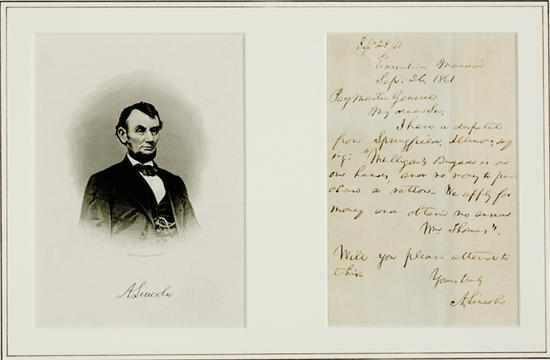 A. Lincoln
Executive Mansion
Sep. 26, 1861
Pay Master General
My dear Sir,
I have a dispatch
from Springfield, Illinois, say
ing: "Mulligan's Brigade is on
our hands, and no money to pur-
chase a ration. We apply for
money and obtain no answer
Wm Thomas".
Will you please attend to
this
Yours truly
A. Lincoln